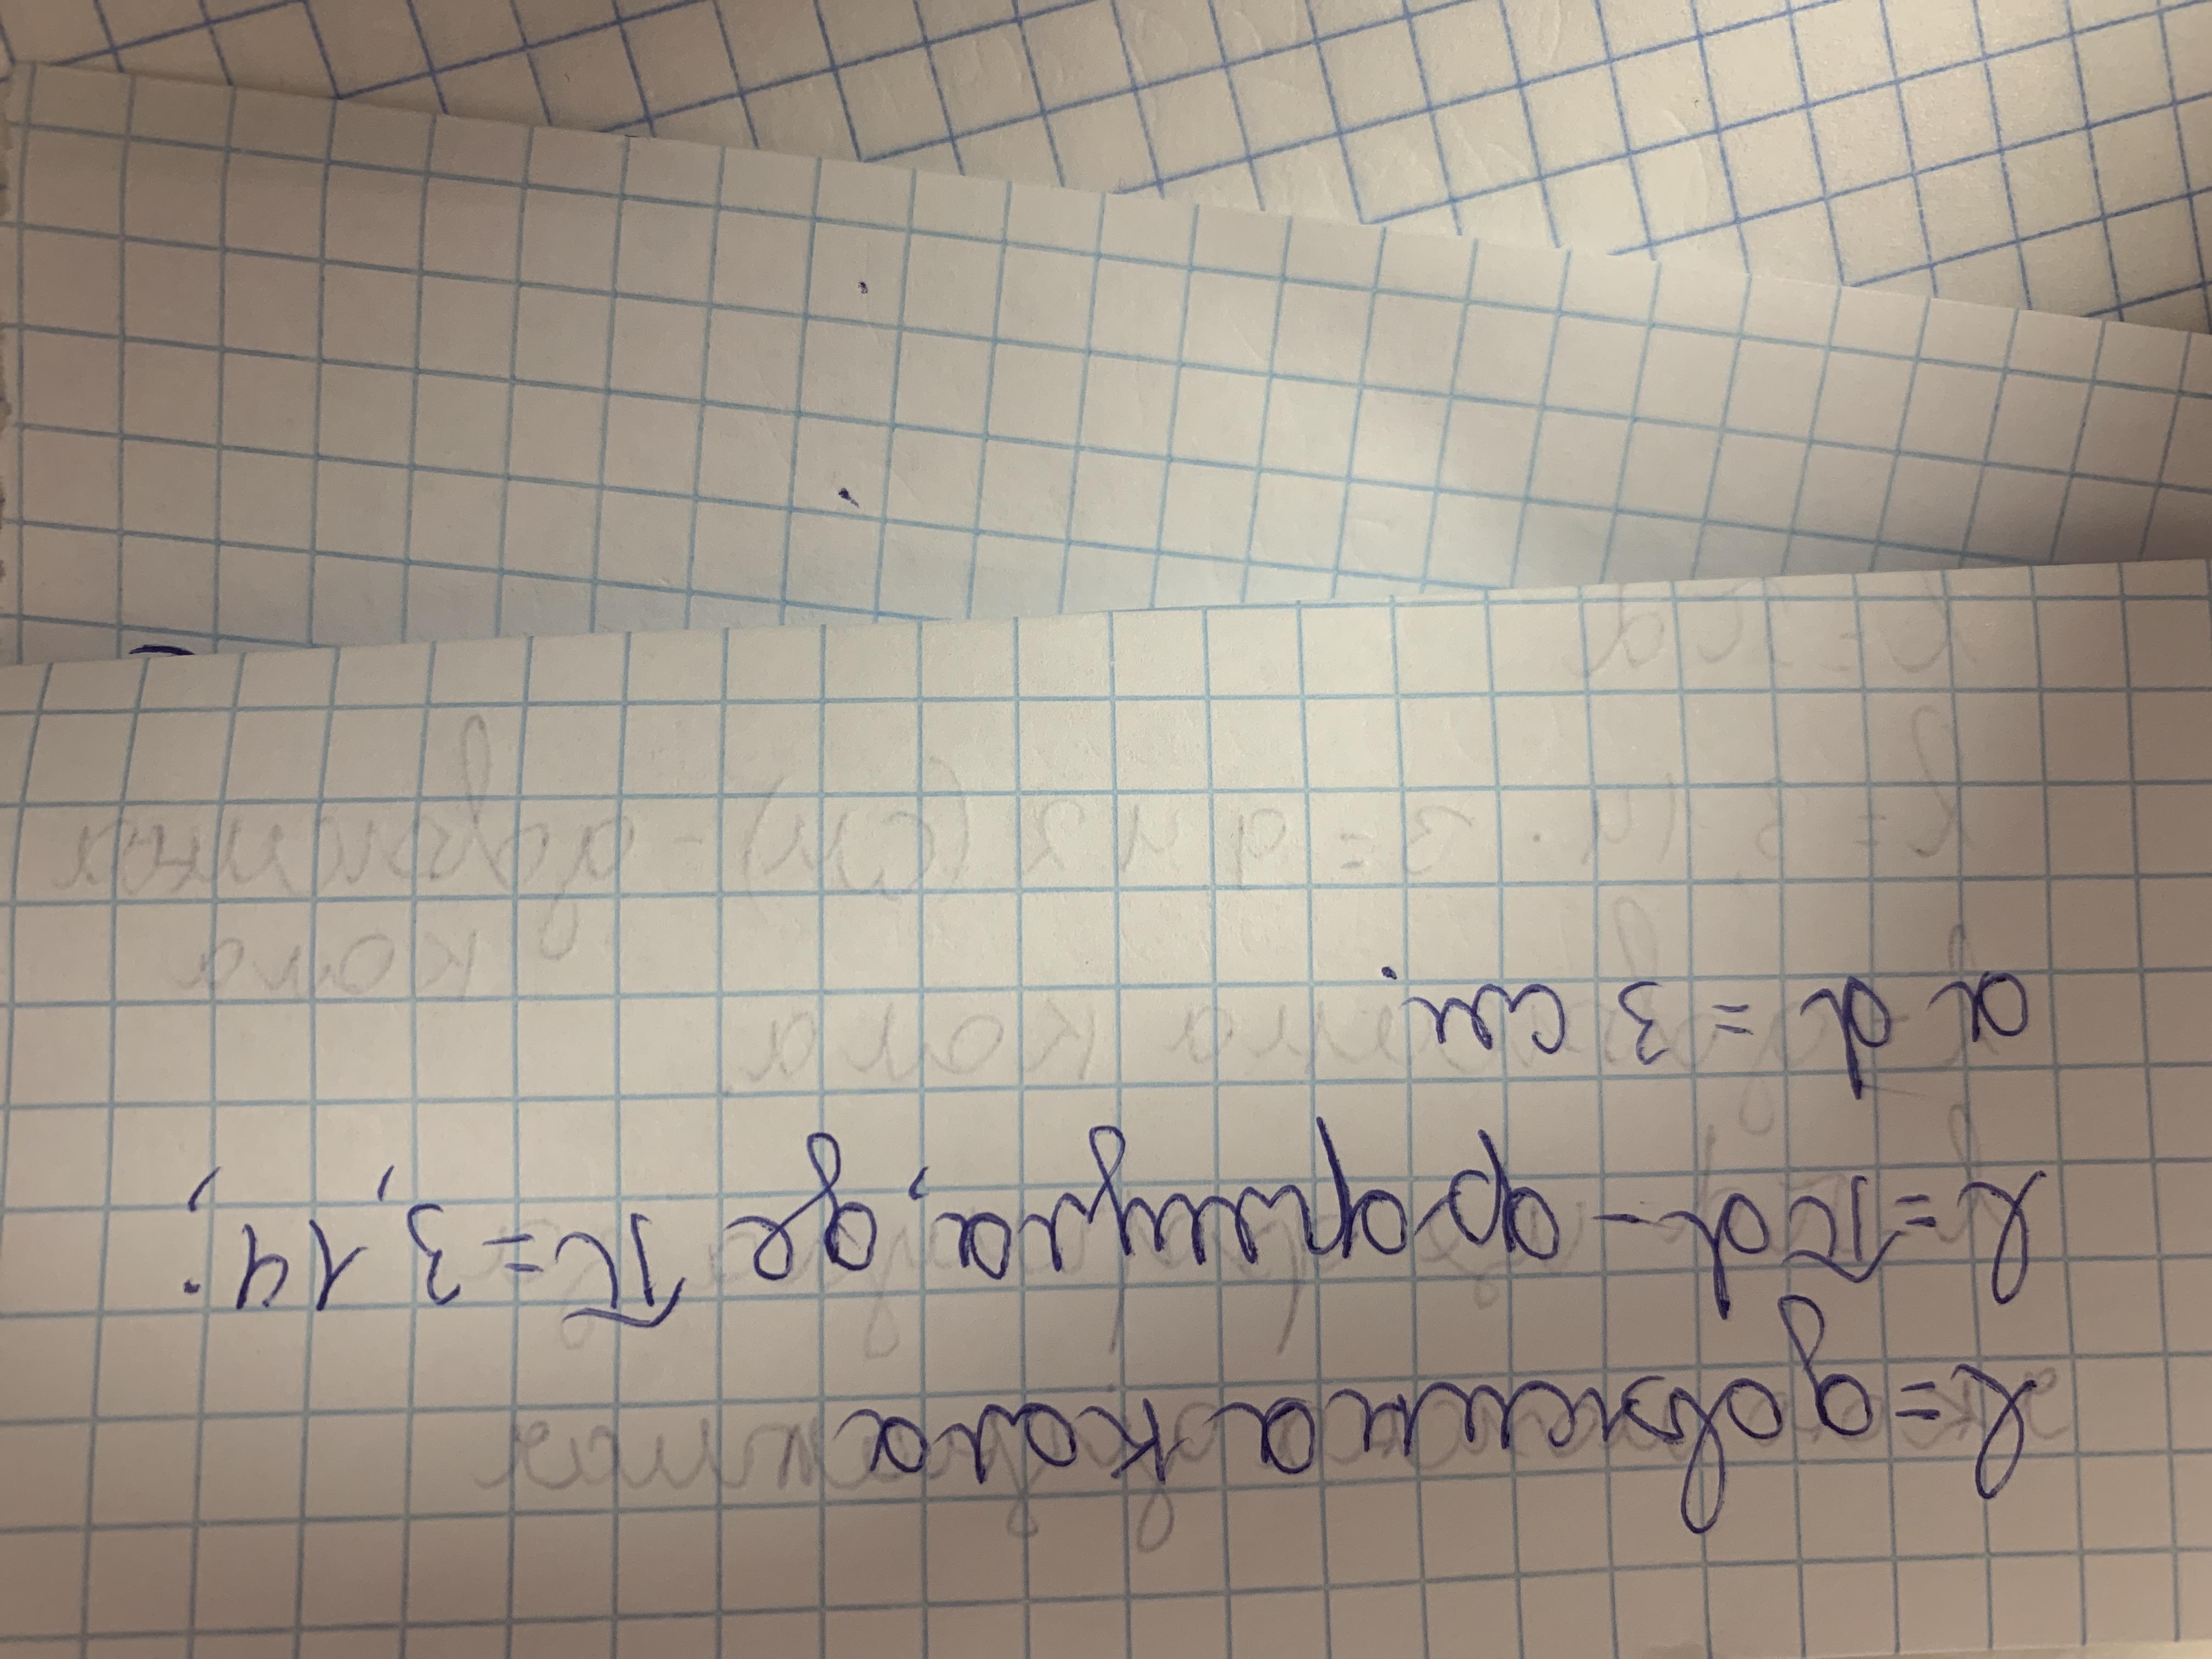 l = довжина кола
l = πd – формула, де π = 3,14;
а d = 3 см.